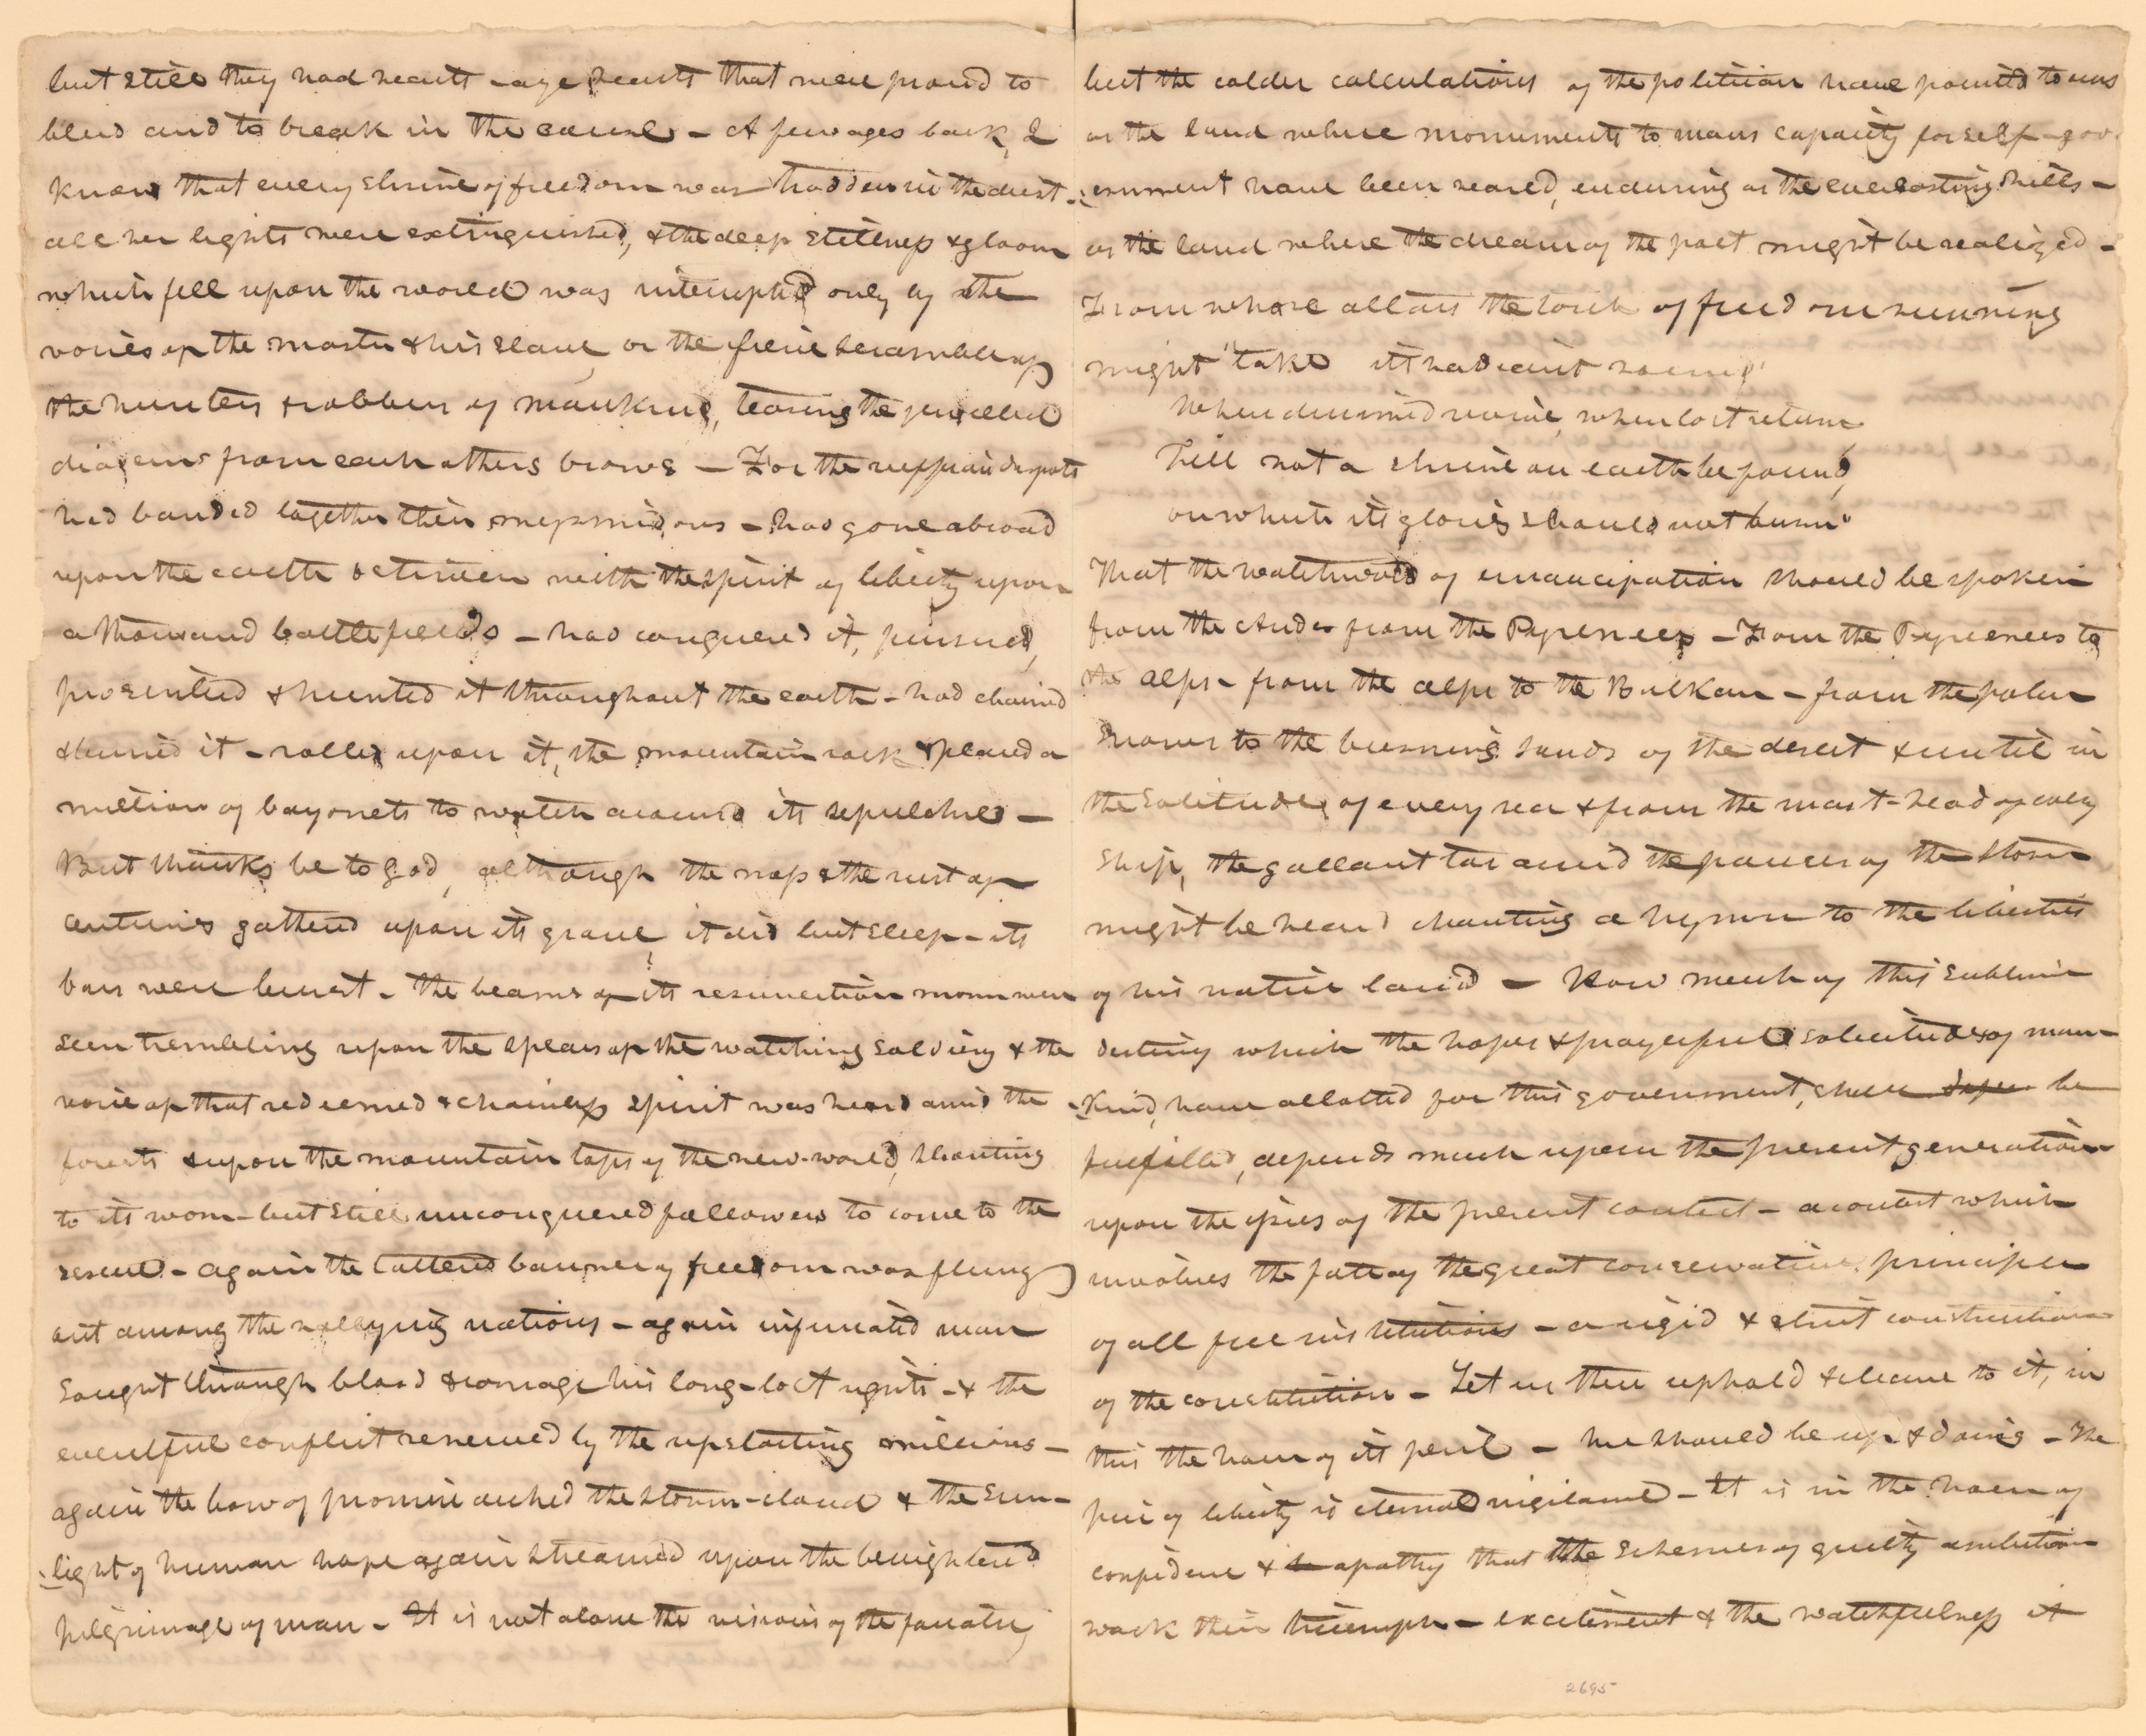 but still they had hearts - aye hearts that were proud to
bleed and to break in the cause - A few ages back, I
know that every shrine of freedom was trodden in the dust -
all her lights were extinguished, & the deep stillness & gloom
which fell upon the world was interrupted only by the
voices of the master & his slave, or the fierce scramble of
the hunters & robbers of mankind, tearing the jewelled
diadems from each others brows - For the ruffian despots
had banded together their myrmidons - had gone abroad
upon the earth & striven with the spirit of liberty upon
a thousand battlefields - had conquered it, pursued,
proscribed & hunted it throughout the earth - had chained
& buried it - rolled upon it, the mountain rock & placed a
million of bayonets to watch around its sepulchre -
But thanks be to God, although the moss & the rust of
centuries gathered upon its grave, it did but sleep - its
bars were burst - the beams of its resurrection morn were
seen trembling upon the spears of the watching soldiery & the
voice of that redeemed & chainless spirit was heard amid the
forests & upon the mountain tops of the new-world, shouting
to its worn - but still unconquered followers to come to the
rescue - again the tattered banner of freedom was flung
out among the rallying nations - again infuriated man
sought through blood & carnage his long-lost rights - & the
eventful conflict renewed by the upstarting millions -
again the bow of promise arched the storm-cloud & the sun-
-light of human hope again streamed upon the benighted
pilgrimage of man - It is not alone the visions of the fanatic,
but the colder calculations of the politician have pointed to ours
as the land where monuments to mans capacity for self-gov
-ernment have been reared, enduring as the everlasting hills -
as the land where the dream of the past might be realized -
From whose altars the torch of freedom running
might "take its radiant rounds
When dimmed revive, when lost return
Till not a shrine on earth be found,
on which its glories should not burn"
That the watchword of emancipation should be spoken
from the Andes from the Pyrenees - From the Pyrenees to
the alps - from the alps to the Balkan - from the polar
snows to the burning sands of the desert & until in
the solitude of every sea & from the mast-head of every
ship, the gallant tar amid the pauses of the storm
might be heard chanting a hymn to the liberties
of his native land - How much of this sublime
destiny which the hopes & prayerful solicitudes of man-
-kind, have allotted for this government, shall be
fulfilled, depends much upon the present generation
upon the issues of the present contest - a contest which
involves the fate of the great conservative principle
of all free institutions - a rigid & strict construction
of the constitution - Let us then uphold & cleave to it, in
this the hour of its peril - We should be up & doing - The
price of liberty is eternal vigilance - It is in the hour of
confidence & apathy that the schemes of guilty ambition
work their triumph - excitement & the watchfulness it
2695